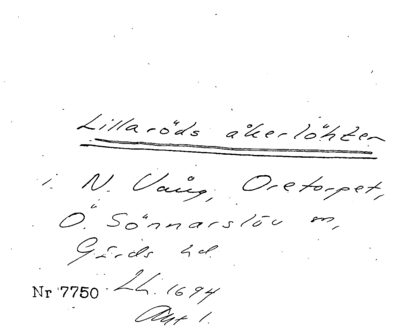 Lillaröds åkerlöhten
i N. Vång, Oretorpet,
Ö. Sönnarslöv m,
Gärds hd.
Nr 7750 Lh. 1694
Akt 1.